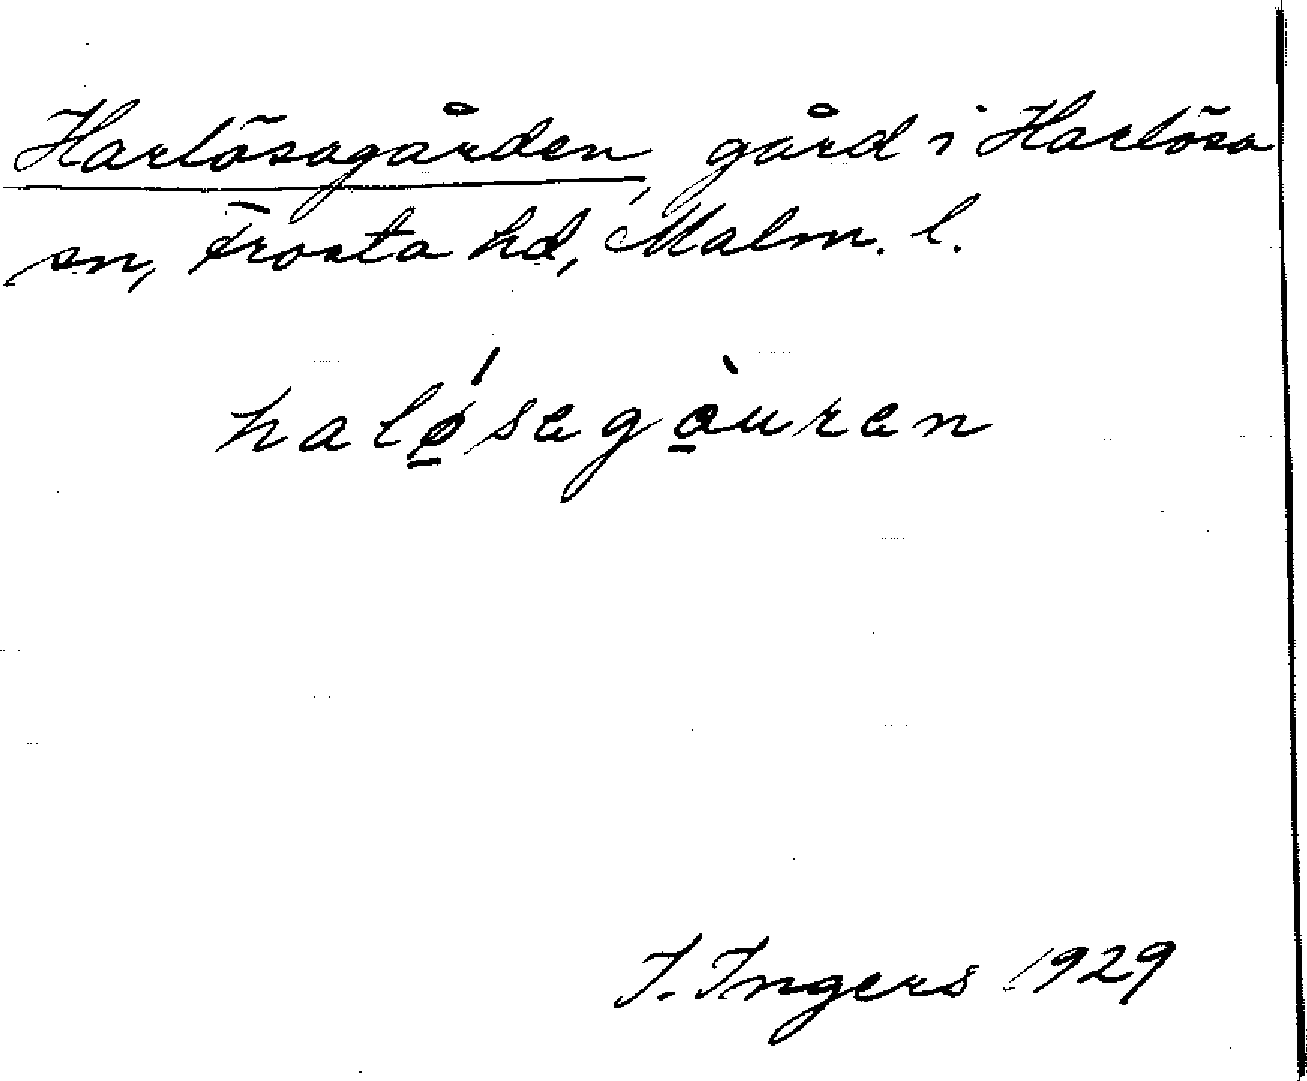 Harlösagården, gård i Harlösa
sn, Frosta hd, Malm. l.
halǿ̠segà̠uren
I. Ingers 1929